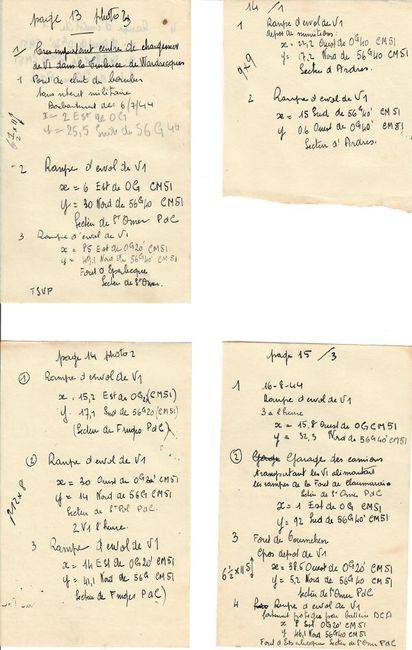 page 13 photo 2
1/ Tres important centre de chargement
de V1 dans la Tuilerie de Wardrecques
1 Point de chute de bombes
sans interet militaire
Bombardement du 6/7/44
x = 2 Est de OG
y = 25,5 Sud de 56 G 44
2 Rampe d'envol de V1
x = 6 Est de OG CM51
y = 30 Nord de 56G40 CM51
Secteur de St Omer PdC
3 Rampe d'envol de V1
x = 85 Est de OG20' CM51
y = 49,1 Nord de 56G40' CM51
Foret d'Eperlecque
Secteur de St Omer.
TSVP
14 / 1
1 Rampe d'envol de V1
depot de munitions:
x = 22,2 Ouest de OG40 CM51
y = 17,2 Nord de 56G40' CM51
Secteur d'Andres.
9 x 9
2 Rampe d'envol de V1
x = 15 Sud de 56G40' CM51
y 0.6 Ouest de OG40' CM51
Secteur d'Andres.
page 14 photo 2
1 Rampe d'envol de V1
x = 15,2 Est de OG20 (CM51)
y = 17,1 Sud de 56G20 (CM51)
(Secteur de Fruges PdC)
2 Rampe d'envol de V1
x = 30 Ouest de OG20' CM51
y = 14 Nord de 56G CM51
Secteur de St Pol PdC
2 V1 l'heure.
3 Rampe d'envol de V1
x = 14 Est de OG20' CM51
y = 41,1 Nord de 56G CM51
Secteur de Fruges PdC)
page 15 / 3
1 16-8-44
Rampe d'envol de V1
3 a l'heure
x = 15.8 Ouest de OG CM51
y = 32,3 Nord de 56G40' CM51
2 Garage des camions
transportant les V1 alimentant
les rampes de la Foret de Clairmarais
Secteur de St Omer PdC
x = 1 Est de OG CM51
y = 92 Sud de 56G40' CM51
3 Foret de Tournehem
Gros depot de V1
x = 38.5 Ouest de OG20' CM51
y = 5,2 Nord de 56G40' CM51
Secteur de St Omer PdC
4 Rampe d'envol de V1
fortement protegee par batterie DCA
x 8 Est OG20' CM51
y 46,1 Nord 56G40 CM51
Foret d'Eperlecque Secteur de St Omer PdC